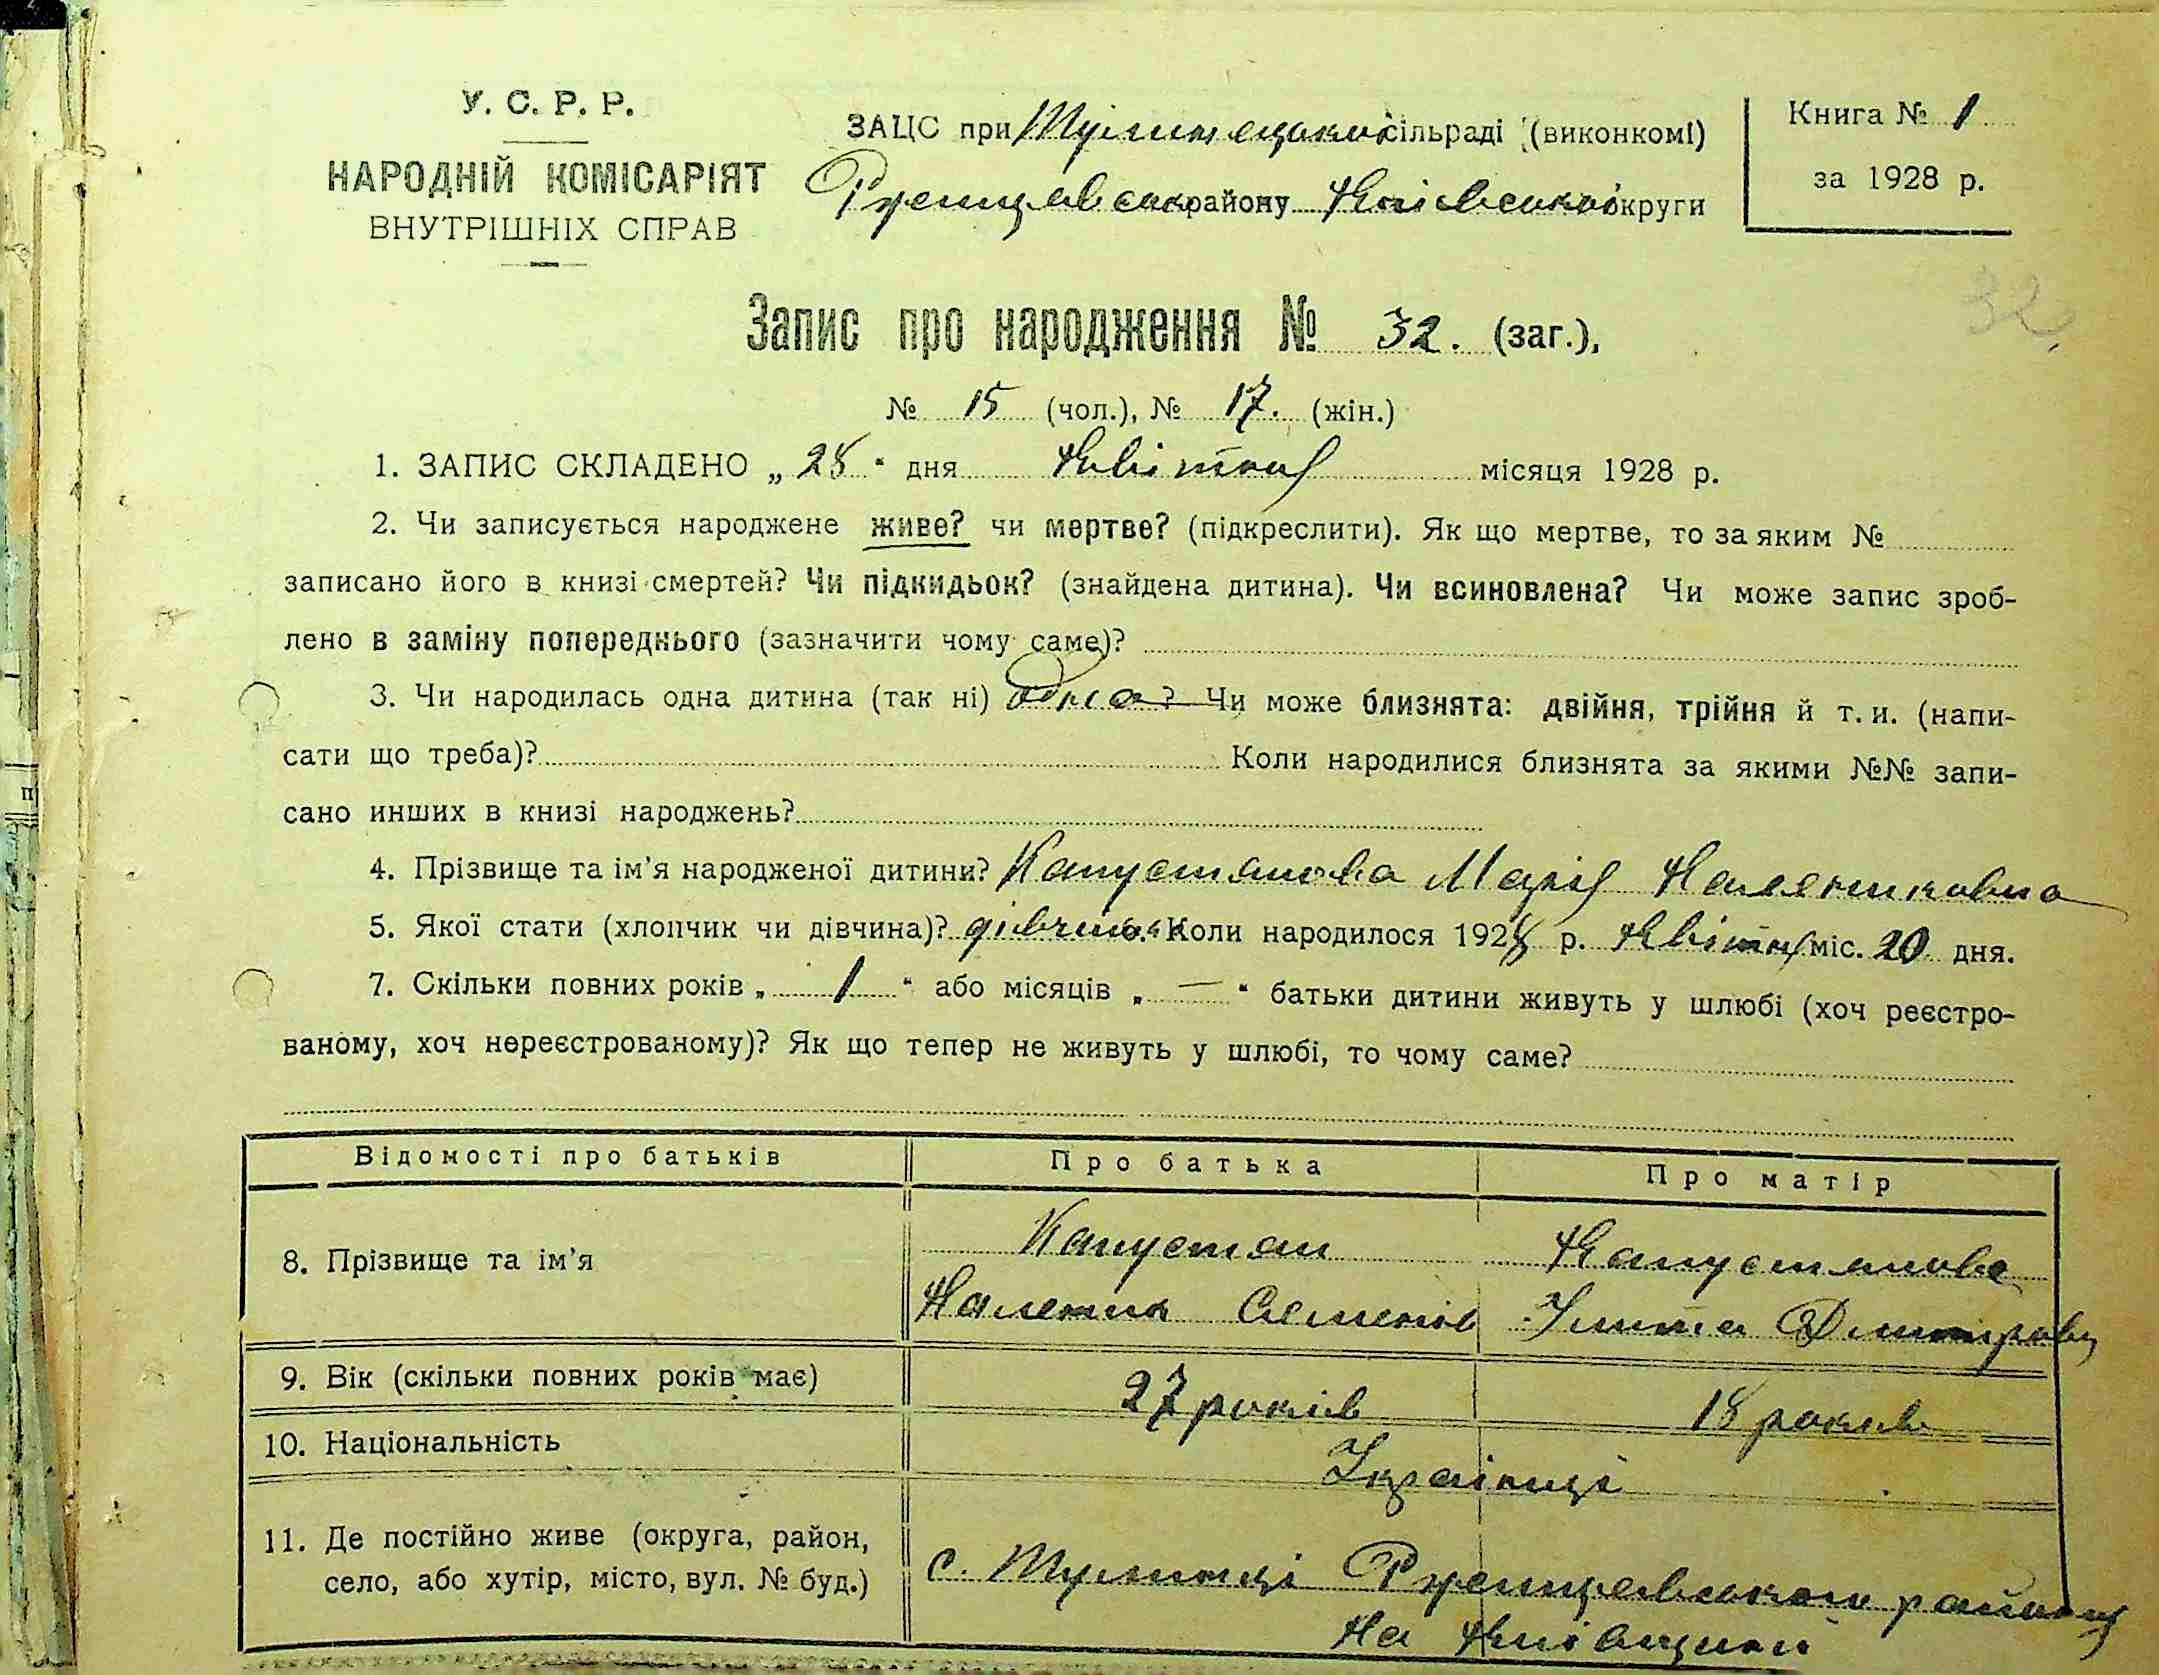 У. С. Р. Р.
НАРОДНІЙ КОМІСАРІЯТ
ВНУТРІШНІХ СПРАВ
ЗАЦС при сільраді (виконкомі)
району Київської округи
Книга № 1
за 1928 р.
32
Запис про народження № 32. (заг.),
№ 15 (чол.), № 17. (жін.)
1. ЗАПИС СКЛАДЕНО „28“ дня Квітня місяця 1928 р.
2. Чи записується народжене живе? чи мертве? (підкреслити). Як що мертве, то за яким №
записано його в книзі смертей? Чи підкидьок? (знайдена дитина). Чи всиновлена? Чи може запис зроб-
лено в заміну попереднього (зазначити чому саме)?
3. Чи народилась одна дитина (так ні) одна? Чи може близнята: двійня, трійня й т. и. (напи-
сати що треба)? Коли народилися близнята за якими №№ запи-
сано инших в книзі народжень?
4. Прізвище та ім’я народженої дитини? Капустянова Марія
5. Якої стати (хлопчик чи дівчина)? дівчина. Коли народилося 1928 р. Квітня міс. 20 дня.
7. Скільки повних років „ 1 “ або місяців „ — “ батьки дитини живуть у шлюбі (хоч реєстро-
ваному, хоч нереєстрованому)? Як що тепер не живуть у шлюбі, то чому саме?
Відомості про батьків Про батька Про матір
8. Прізвище та ім’я Капустян Капустянова
Семенов
9. Вік (скільки повних років має) 27 років 18 років
10. Національність Українці
11. Де постійно живе (округа, район,
село, або хутір, місто, вул. № буд.) с. району
на Київщині